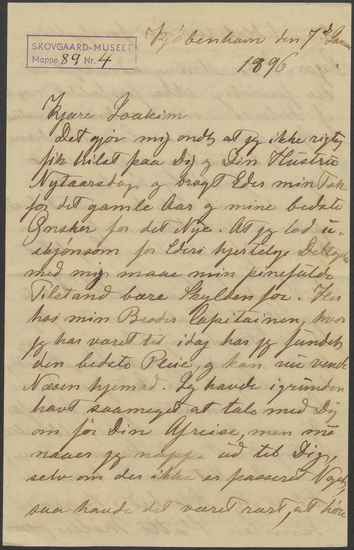 SKOVGAARD-MUSEET
Mappe 89 Nr. 4
Kjøbenhavn den 7d
1896
Kjære Joakim
Det gjør mig ondt, at jeg ikke rigtig
fik hilst paa Dig og Din Hustru
Nytaarsdag og bragt Eder min Tak
for det gamle Aar og mine bedste
Ønsker for det Nye. At jeg lod u-
skjønsom for Eders hjertelige Deltagelse
med mig maae min pinefulde
Tilstand bære Skylden for. Her
hos min Broder Capitainen, hvor
jeg har været til idag har jeg fundet
den bedste Pleie, og kan nu vende
Næsen hjemad. Jeg havde igrunden
havt saameget at tale med Dig
om før Din Afreise, men nu
naaer jeg neppe ud til Dig,
selv om der ikke er passeret Noget,
saa havde det været rart, at høre